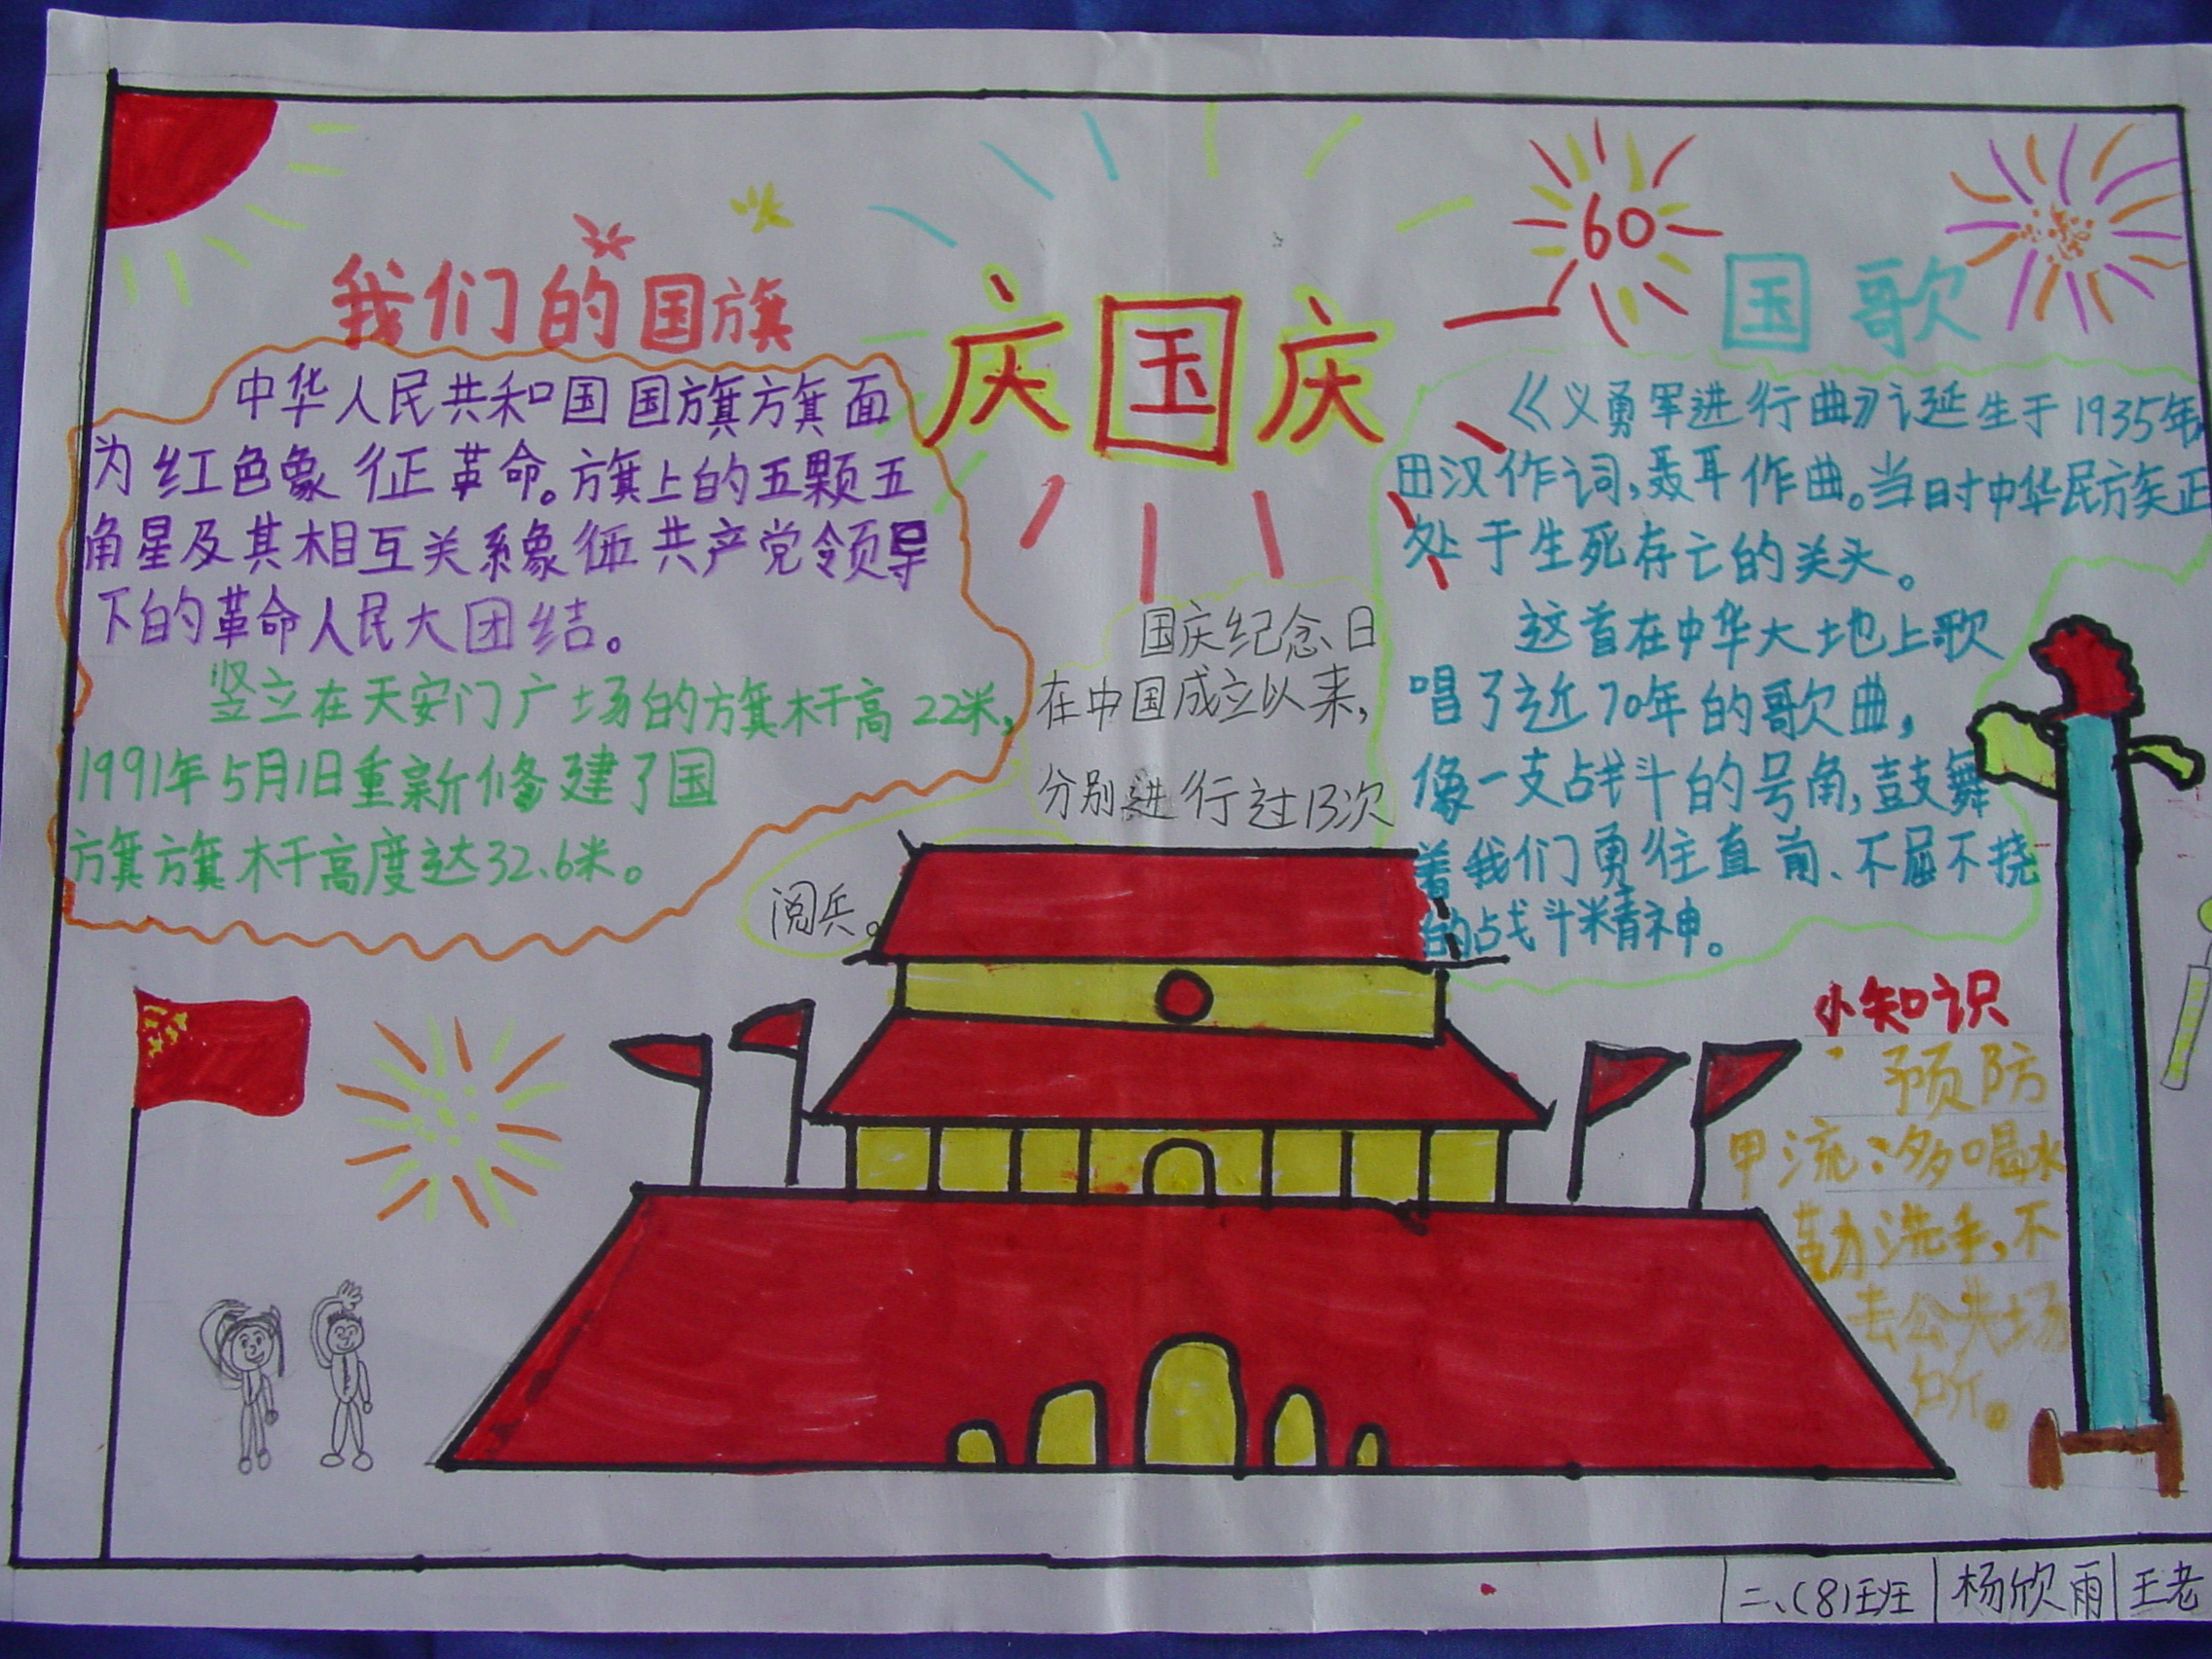 我们的国旗
中华人民共和国国旗旗面
为红色象征革命。旗上的五颗五
角星及其相互关系象征共产党领导
下的革命人民大团结。
竖立在天安门广场的旗杆高22米,
1991年5月1日重新修建了国
旗旗杆高度达32.6米。
庆国庆
国庆纪念日
在中国成立以来,
分别进行过13次
阅兵。
60
国歌
《义勇军进行曲》诞生于1935年
田汉作词,聂耳作曲。当时中华民族正
处于生死存亡的关头。
这首在中华大地上歌
唱了近70年的歌曲,
像一支战斗的号角,鼓舞
着我们勇往直前、不屈不挠
的战斗精神。
小知识
预防
甲流:多喝水
勤洗手,不
去公共场
所。
二、(8)班
杨欣雨
王老